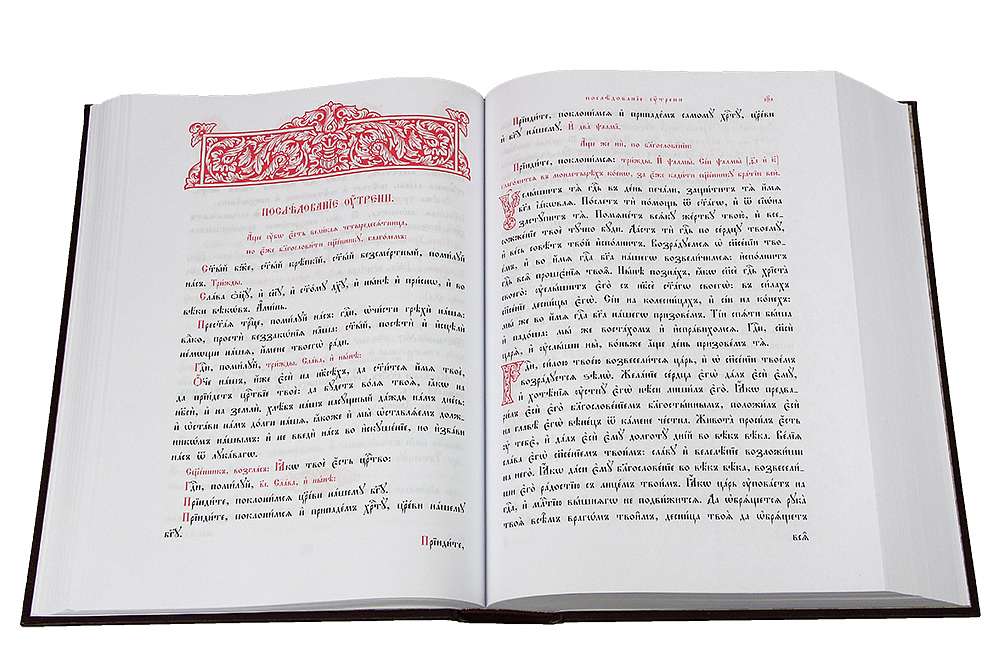 ПОСЛѢ́ДОВАНЇЕ ОУ҆́ТРЕНИ.
А҆́ще ᲂу҆́бѡ є҆́сть вели́каѧ четыредесѧ́тница,
по є҆́же благослови́ти сщ҃е́нникꙋ, глаго́лемъ:
Ст҃ы́й бж҃е, ст҃ы́й крѣ́пкїй, ст҃ы́й безсме́ртный, поми́лꙋй
на́съ. Три́жды.
Сла́ва ѻ҆ц҃ꙋ̀, и҆ сн҃ꙋ, и҆ ст҃о́мꙋ дх҃ꙋ, и҆ ны́нѣ и҆ при́снѡ, и҆ во
вѣ́ки вѣкѡ́въ. А҆ми́нь.
Прест҃а́ѧ трⷪ҇це, поми́лꙋй на́съ: гдⷭ҇и, ѡ҆чи́сти грѣхѝ на́шѧ:
влⷣко, простѝ беззакѡ́нїѧ на̑ша: ст҃ы́й, посѣтѝ и҆ и҆сцѣлѝ
не́мѡщи на́шѧ, и҆́мене твоегѡ̀ ра́ди.
Гдⷭ҇и, поми́лꙋй, три́жды. Сла́ва, и҆ ны́нѣ:
Ѻ҆́че на́шъ, и҆́же є҆сѝ на нб҃сѣ́хъ, да ст҃и́тсѧ и҆́мѧ твоѐ,
да прїи́детъ црⷭ҇твїе твоѐ: да бꙋ́детъ во́лѧ твоѧ̀, ꙗ҆́кѡ на
нб҃сѝ, и҆ на землѝ. хлѣ́бъ на́шъ насꙋ́щный да́ждь на́мъ дне́сь:
и҆ ѡ҆ста́ви на́мъ до́лги на́шѧ, ꙗ҆́коже и҆ мы̀ ѡ҆ставлѧ́емъ долж-
никѡ́мъ на́шымъ: и҆ не введѝ на́съ во и҆скꙋше́нїе, но и҆зба́ви
на́съ ѿ лꙋка́вагѡ.
Сщ҃е́нникъ, возгла́съ: Ꙗ҆́кѡ твоѐ є҆́сть црⷭ҇тво:
Гдⷭ҇и, поми́лꙋй, в҃і. Сла́ва, и҆ ны́нѣ:
Прїиди́те, поклони́мсѧ цр҃е́ви на́шемꙋ бг҃ꙋ.
Прїиди́те, поклони́мсѧ и҆ припаде́мъ хрⷭ҇тꙋ̀, цр҃е́ви на́шемꙋ
бг҃ꙋ.
Прїиди́те,
ПОСЛѢ́ДОВАНЇЕ ОУ҆́ТРЕНИ
Прїиди́те, поклони́мсѧ и҆ припаде́мъ самомꙋ̀ хрⷭ҇тꙋ̀, цр҃е́ви
и҆ бг҃ꙋ на́шемꙋ. И҆ два̀ ѱалма̑.
А҆́ще же нѝ, по благослове́нїи:
Прїиди́те, поклони́мсѧ: три́жды. И҆ ѱалмы̀. Сі́и ѱалмы̀ [д҃і и҆ к҃]
глаго́лютсѧ въ монастырѣ́хъ ко́снѡ, за є҆́же кади́ти сщ҃е́нникꙋ бра́тїи всѝ.
Оу҆слы́шитъ тѧ̀ гдⷭ҇ь въ де́нь печа́ли, защи́титъ тѧ̀ и҆́мѧ
бг҃а і҆а́кѡвлѧ. По́слетъ тѝ по́мощь ѿ ст҃а́гѡ, и҆ ѿ сїѡ́на
застꙋ́питъ тѧ̀. Помѧне́тъ всѧ́кꙋ же́ртвꙋ твою̀, и҆ все-
сожже́нїе твоѐ тꙋ́чно бꙋ́ди. Да́стъ тѝ гдⷭ҇ь по се́рдцꙋ твоемꙋ̀,
и҆ ве́сь совѣ́тъ тво́й и҆спо́лнитъ. Возра́дꙋемсѧ ѡ҆ сп҃се́нїи тво-
е́мъ, и҆ во и҆́мѧ гдⷭ҇а бг҃а на́шегѡ возвели́чимсѧ: и҆спо́лнитъ
гдⷭ҇ь всѧ̑ проше́нїѧ твоѧ̑. Ны́нѣ позна́хъ, ꙗ҆́кѡ сп҃сѐ гдⷭ҇ь хрⷭ҇та̀
своего̀: ᲂу҆слы́шитъ є҆го̀ съ нб҃сѐ ст҃а́гѡ своегѡ̀: въ си́лахъ
сп҃се́нїе десни́цы є҆гѡ̀. Сі́и на колесни́цахъ, и҆ сі́и на ко́нехъ:
мы́ же во и҆́мѧ гдⷭ҇а бг҃а на́шегѡ призове́мъ. Ті́и спѧ́ти бы́ша
и҆ падо́ша: мы́ же воста́хомъ и҆ и҆спра́вихомсѧ. Гдⷭ҇и, сп҃сѝ
царѧ̀, и҆ ᲂу҆слы́ши ны̀, во́ньже а҆́ще де́нь призове́мъ тѧ̀.
Гдⷭ҇и, си́лою твое́ю возвесели́тсѧ ца́рь, и҆ ѡ҆ сп҃се́нїи твое́мъ
возра́дꙋетсѧ ѕѣлѡ̀. Жела́нїе се́рдца є҆гѡ̀ да́лъ є҆сѝ є҆мꙋ̀,
и҆ хотѣ́нїѧ ᲂу҆стнꙋ̀ є҆гѡ̀ нѣ́си лиши́лъ є҆гѡ̀. Ꙗ҆́кѡ предва-
ри́лъ є҆сѝ є҆го̀ благослове́нїемъ благосты́ннымъ, положи́лъ є҆сѝ
на главѣ̀ є҆гѡ̀ вѣне́цъ ѿ ка́мене че́стна. Живота̀ проси́лъ є҆́сть
ᲂу҆ тебє̀, и҆ да́лъ є҆сѝ є҆мꙋ̀ долготꙋ̀ дні́й во вѣ́къ вѣ́ка. Ве́лїѧ
сла́ва є҆гѡ̀ сп҃се́нїемъ твои́мъ: сла́вꙋ и҆ велелѣ́пїе возложи́ши
на него̀. Ꙗ҆́кѡ да́си є҆мꙋ̀ благослове́нїе во вѣ́къ вѣ́ка, возвесели́-
ши є҆го̀ ра́достїю съ лице́мъ твои́мъ. Ꙗ҆́кѡ ца́рь ᲂу҆пова́етъ на
гдⷭ҇а, и҆ млⷭ҇тїю вы́шнѧгѡ не подви́житсѧ. Да ѡ҆брѧ́щетсѧ рꙋка̀
твоѧ̀ всѣ̑мъ врагѡ́мъ твои̑мъ, десни́ца твоѧ̀ да ѡ҆брѧ́щетъ
всѧ̑